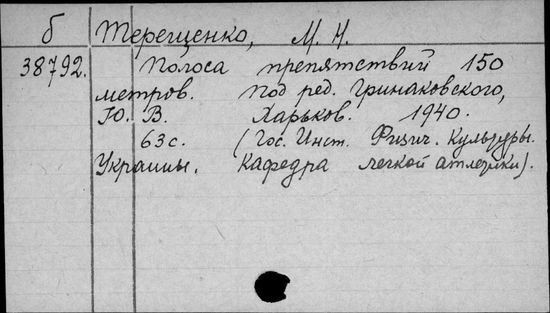 б Терещенко, М. Н.
38792. Полоса препятствий 150
метров. Под ред. Гринаковского,
Ю. В. Харьков. 1940.
63с. (Гос. Инст. Физич. Культуры.
Украины. Кафедра легкой атлетики).